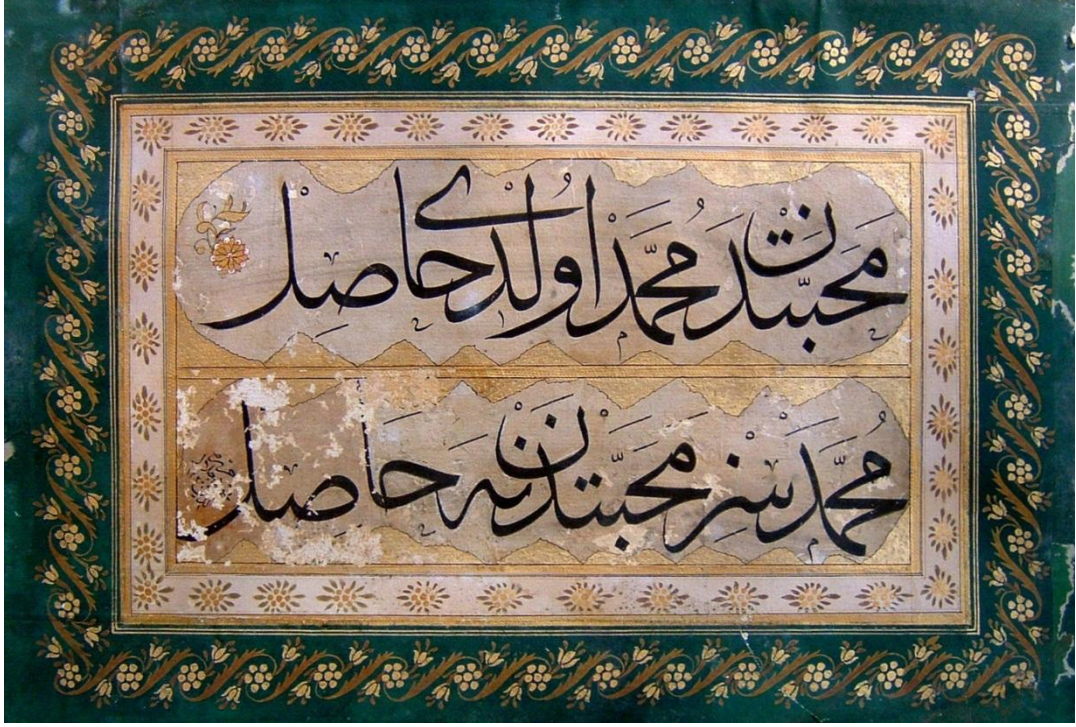 محبّتدن محمّد اولدی حاصل
محمّدسز محبّتدن نه حاصل